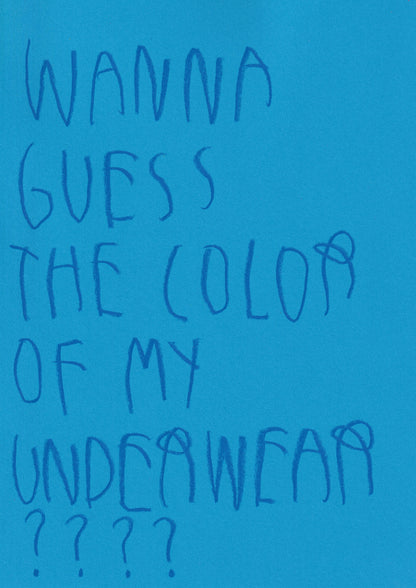 WANNA
GUESS
THE COLOR
OF MY
UNDERWEAR
????